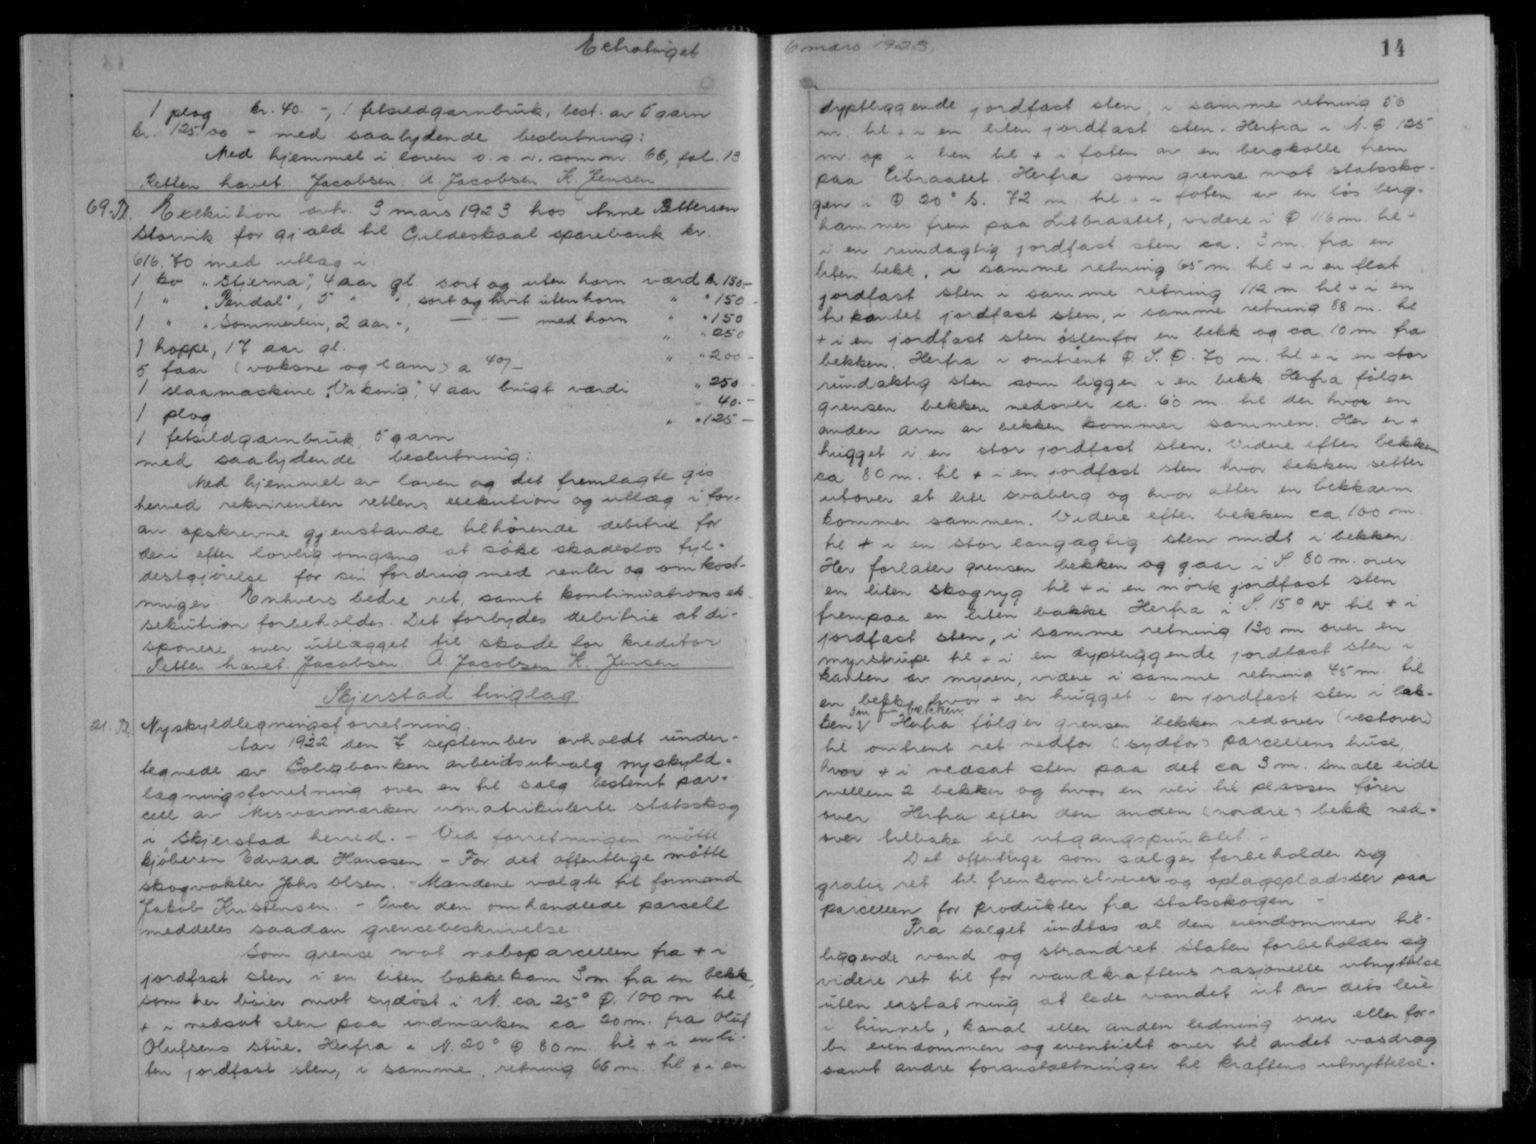 Extratinget
1 plog kr. 40.-, 1 fetsildgarnbruk, best. av 5 garn
kr. 125.00 - med saalydende beslutning:
Med hjemmel i loven o.s.v. som nr. 66, fol. 13
Retten hævet. Jacobsen. A. Jacobsen K. Jensen
69. Exekution avh. 3 mars 1923 hos Anne Pettersen
Storvik for gjæld til Gildeskaal sparebank kr.
616.70 med utlæg i:
1 ko "Stjerna", 4 aar gl. sort og uten horn værd kr 150-
1 " "Rendal", 5 " ", sort og hvit uten horn " " 150-
1 " "Sommerlin, 2 aar ", — " — med horn " " 150
1 hoppe, 17 aar gl. " " 250
5 faar (voksne og lam) a 40/- " " 200-
1 slaamaskine "Viking", 4 aar brugt værdi " 250.-
1 plog " 40.-
1 fetsildgarnbruk, 5 garn " " 125-
med saalydende beslutning:
Med hjemmel av loven og det fremlagte gis
herved rekvirenten rettens exekution og utlæg i for-
an opskrevne gjenstande tilhørende debitrix for
deri efter lovlig omgang at søke skadesløs fyl-
destgjørelse for sin fordring med renter og omkost-
ninger. Enhvers bedre ret, samt kontinuationsek-
sekution forbeholdes. Det forbydes debitrix at di-
sponere over utlægget til skade for kreditor
Retten hævet. Jacobsen A. Jacobsen K. Jensen
Skjerstad tinglag
21. Nyskyldlegningsforretning.
Aar 1922 den 7 september avholdt under-
tegnede av Boligbanken arbeidsutvalg nyskyld-
lægningsforretning over en til salg bestemt par-
cell av Misværmarken umatrikulerte statsskog
i Skjerstad herred. - Ved forretningen møtte
kjøberen Edvard Hanssen - For det offentlige møtte
skogvokter Johs Olsen. - Mændene valgte til formand
Jakob Kristensen. - Over den omhandlede parcell
meddeles saadan grensebeskrivelse
Som grense mot naboparcellen fra + i
jordfast sten i en liten bakkekam 3 m fra en bekk,
som her bøier mot sydøst i N. ca 25° Ø. 100 m til
+ i nedsat sten paa indmarken ca 20 m. fra Oluf
Olufsens stue. Herfra i N. 20° Ø 80 m. til + i en li-
ten jordfast sten, i samme retning 66 m. til + i en
6 mars 1923.
14
dyptliggende jordfast sten, i samme retning 50
m. til + i en liten jordfast sten. Herfra i N. Ø 125
m. op i lien til + i foten av en bergkolle frem
paa Libraatet. Herfra som grense mot statssko-
gen i Ø 20° S. 72 m. til + i foten av en løs berg-
hammer frem paa Litbraatet, videre i Ø 116 m. til +
i en rundagtig jordfast sten ca. 3 m. fra en
liten bekk, i samme retning 65 m. til + i en flat
jordfast sten i samme retning 112 m. til + i en
trekantet jordfast sten, i samme retning 88 m. til
+ i en jordfast sten østenfor en bekk og ca. 10 m. fra
bekken. Herfra i omtrent Ø. S. Ø. 70 m. til + i en stor
rundaktig sten som ligger i en bekk. Herfra følger
grensen bekken nedover ca. 60 m. til der hvor en
anden arm av bekken kommer sammen. Her er +
hugget i en stor jordfast sten. Videre efter bekken
ca 80 m. til + i en jordfast sten hvor bekken setter
utover et lite svaberg og hvor atter en bekkarm
kommer sammen. Videre efter bekken ca. 100 m.
til + i en stor langagtig sten midt i bekken.
Her forlater grensen bekken og gaar i S. 80 m. over
en liten skogryg til + i en mørk jordfast sten
frempaa en liten bakke. Herfra i S. 15° v til + i
jordfast sten, i samme retning 130 m over en
myrstrupe til + i en dyptliggende jordfast sten i
kanten av myren, videre i samme retning 45 m. til
en bekk, hvor + er hugget i en jordfast sten i bak-
ken 3 m fra bekken. Herfra følger grensen bekken nedover (vestover)
til omtrent ret nedfor (sydfor) parcellens huse,
hvor + i nedsat sten paa det ca 3 m. smale eide
mellem 2 bekker og hvor en vei til plassen fører
over. Herfra efter den anden (nordre) bekk ned-
over tilbake til utgangspunktet. -
Det offentlige som sælger forbeholder sig
gratis ret til fremkomstveier og oplagspladser paa
parcellen for produkter fra statsskogen -
Fra salget undtas al den eiendommen til-
liggende vand og strandret. Staten forbeholder sig
videre ret til for vandkraftens rasjonelle utnyttelse
uten erstatning at lede vandet ut av dets leie
i tunnel, kanal eller anden ledning over eller for-
bi eiendommen og eventuelt over til andet vasdrag
samt andre foranstaltninger til kraftens utnyttelse.